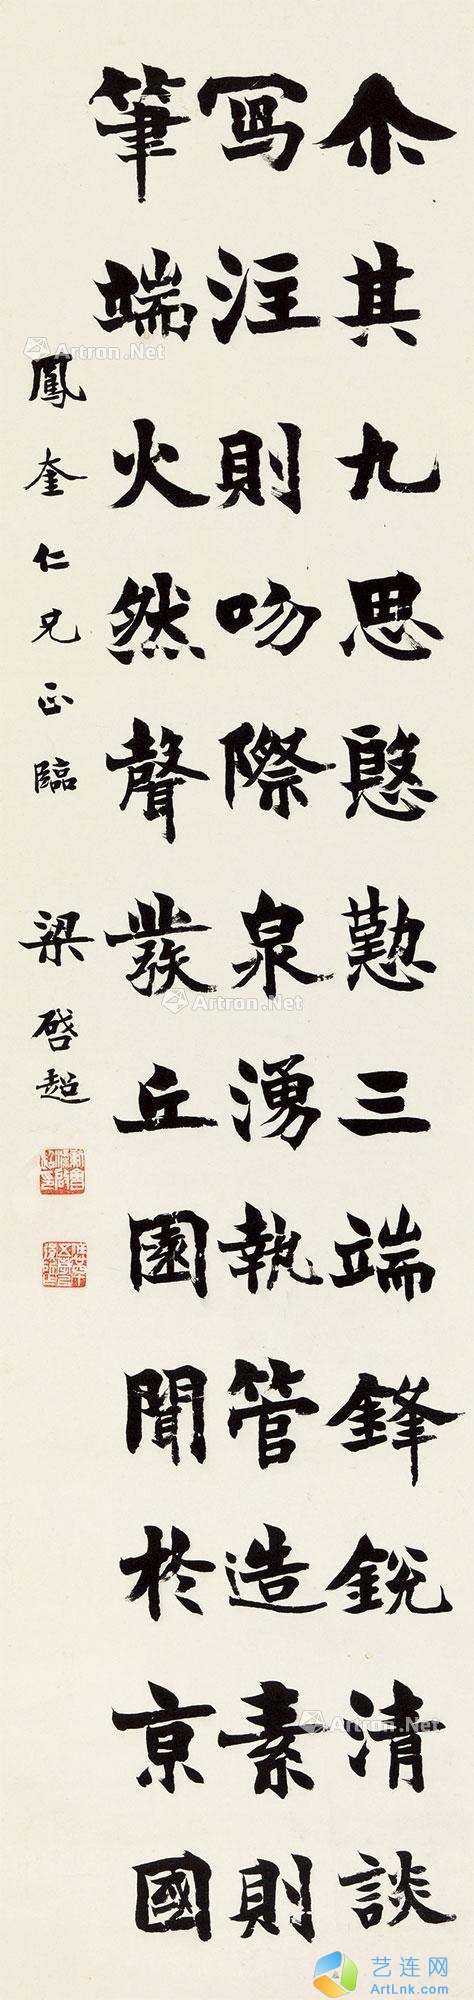 尒其九思慇懃三端鋒銳清談
寫注則吻際泉湧執管造素則
筆端火然聲發丘園聞於京國
鳳奎仁兄正臨 梁啓超
Artron.Net
Artron.Net
Artron.Net
Artron.Net
艺连网
ArtLnk.com